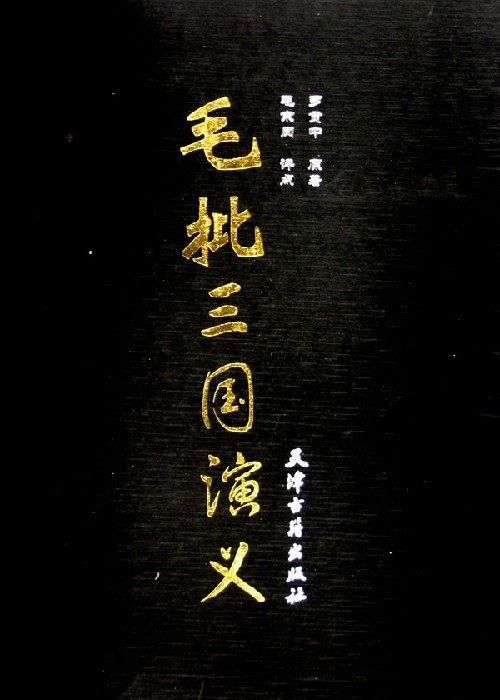 罗贯中 原著
毛宗岗 评点
毛批三国演义
天津古籍出版社